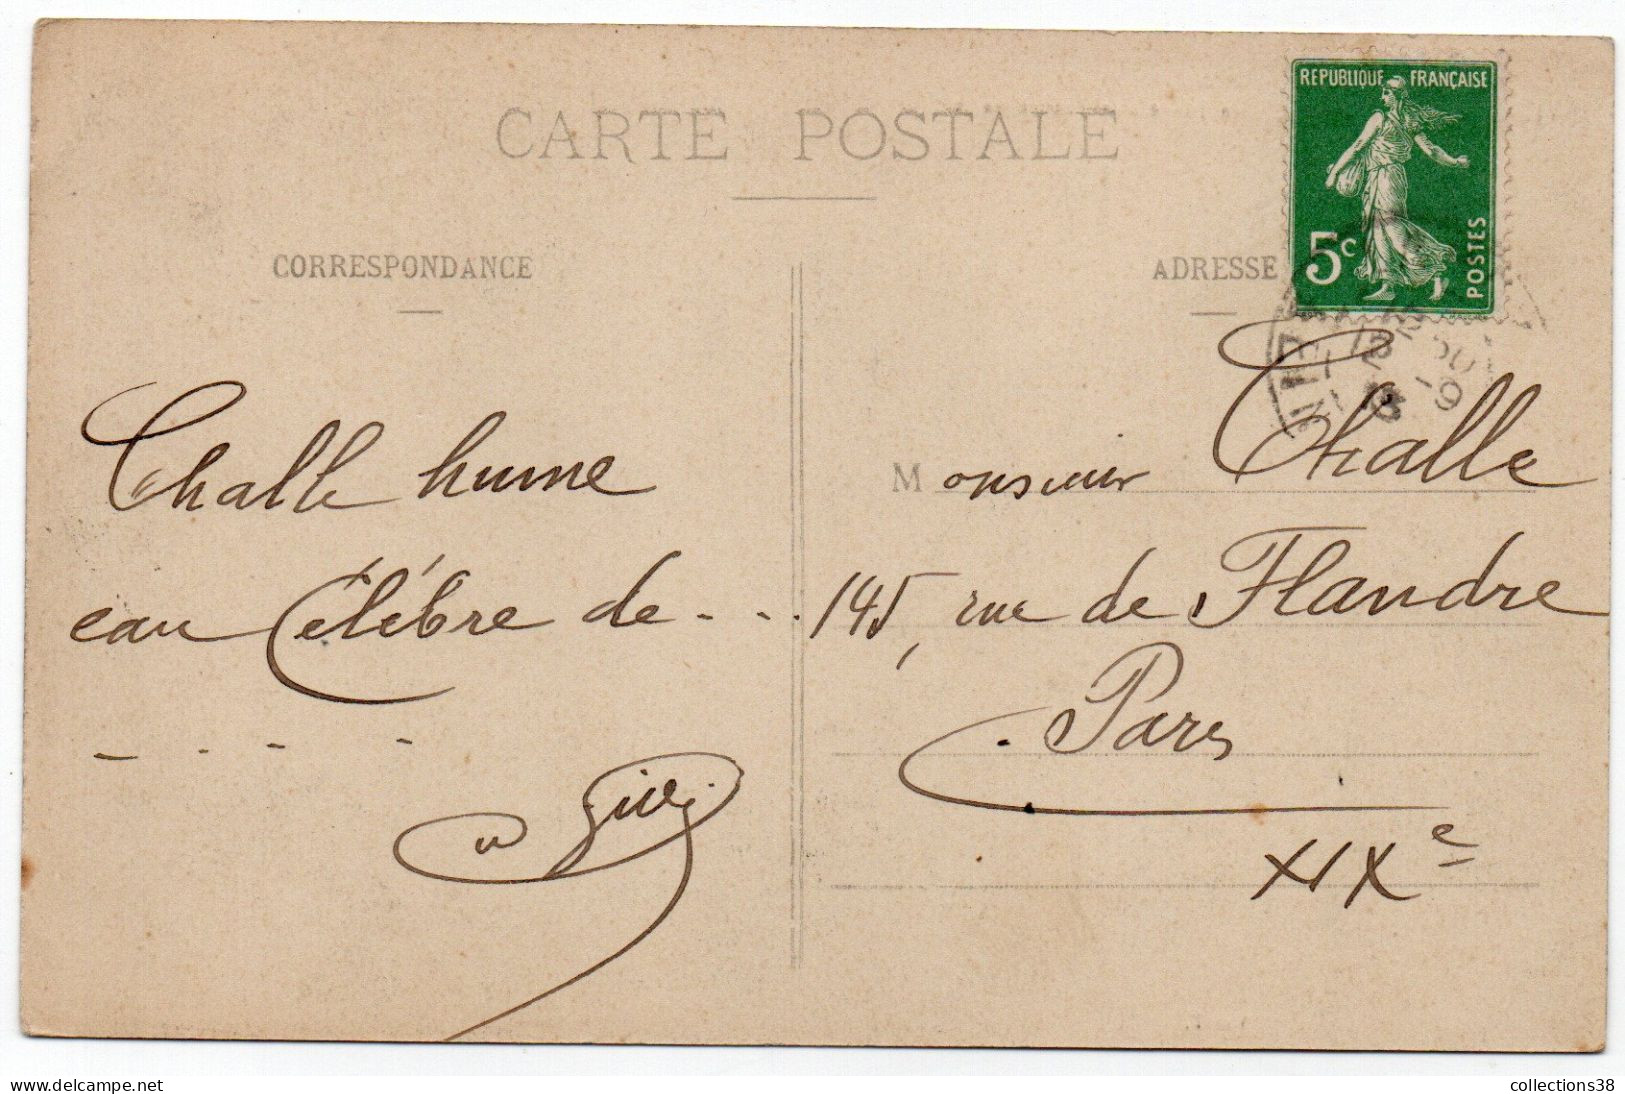 CARTE POSTALE
CORRESPONDANCE
ADRESSE
REPUBLIQUE FRANÇAISE
5c
POSTES
Challe hume
eau Célèbre de - - .
- . - -
Monsieur Challe
145, rue de Flandre
Paris
XIXe
www.delcampe.net
collections38